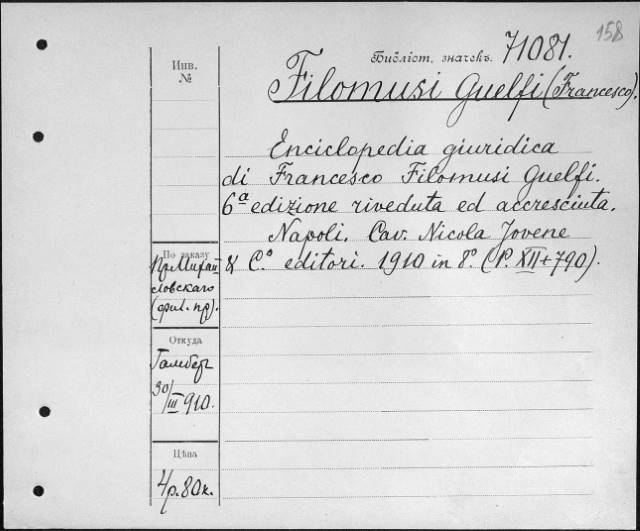 158
Библіот. значекъ. 71081.
Инв.
№
Filomusi Guelfi (Francesco).
Enciclopedia giuridica
di Francesco Filomusi Guelfi.
6ª edizione riveduta ed accresciuta.
Napoli. Cav. Nicola Jovene
& C.º editori. 1910 in 8º. (P. XII+790).
По заказу
Пр. Михай
ловскаго
(фил. пр).
Откуда
Гамбер
30/III 910.
Цѣна
4р. 80к.